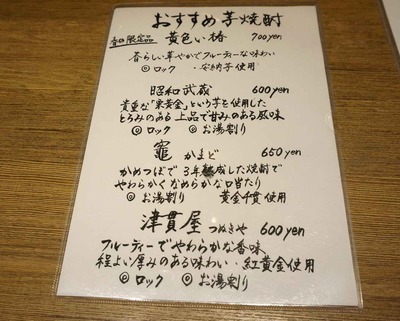 おすすめ芋焼酎
春日限定品 黄色い椿 700yen
春らしい華やかでフルーティーな味わい
◎ロック ・安納芋使用
昭和武蔵 600yen
貴重な"栗黄金"という芋を使用した
とろみのある上品で甘みのある風味
◎ロック ◎お湯割り
竈 かまど 650yen
かめつぼで3年熟成した焼酎で
やわらかくなめらかな口当たり
◎お湯割り 黄金千貫使用
津貫屋 つぬきや 600yen
フルーティーでやわらかな香味
程よい厚みのある味わい・紅黄金使用
◎ロック ◎お湯割り